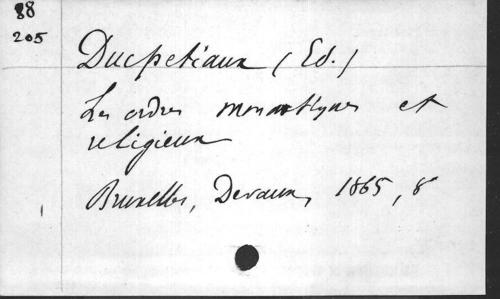 88
205
Ducpetiaux (Ed.)
Les ordres monastiques et
religieux
Bruxelles, Devaux, 1865, 8°